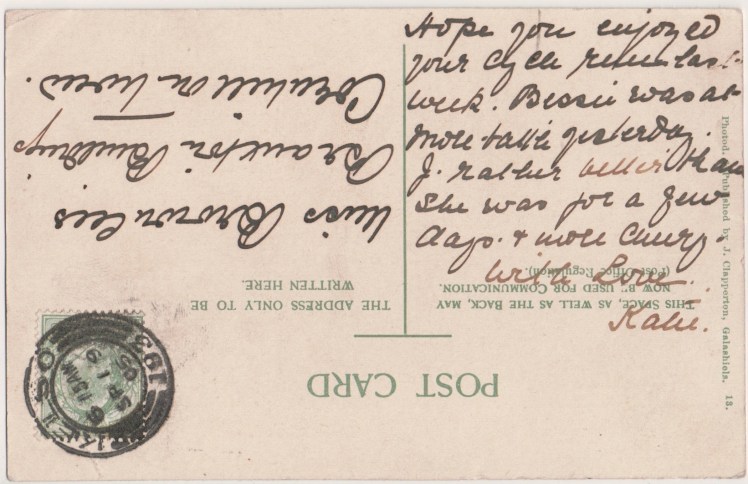 Hope you enjoyed
your cycle run last
week. Bessie was at
More battle yesterday.
J. rather better than
she was for a few
days. & more cheery.
With Love
Katie.
POST CARD
THIS SPACE, AS WELL AS THE BACK, MAY
NOW BE USED FOR COMMUNICATION.
(Post Office Regulation).
THE ADDRESS ONLY TO BE
WRITTEN HERE.
Miss Brownlees
Braxton Buildings
Cornhill on Tweed.
Photod. & Published by J. Clapperton, Galashiels. 13.
KELSO
6 15AM
SP 19
05
193